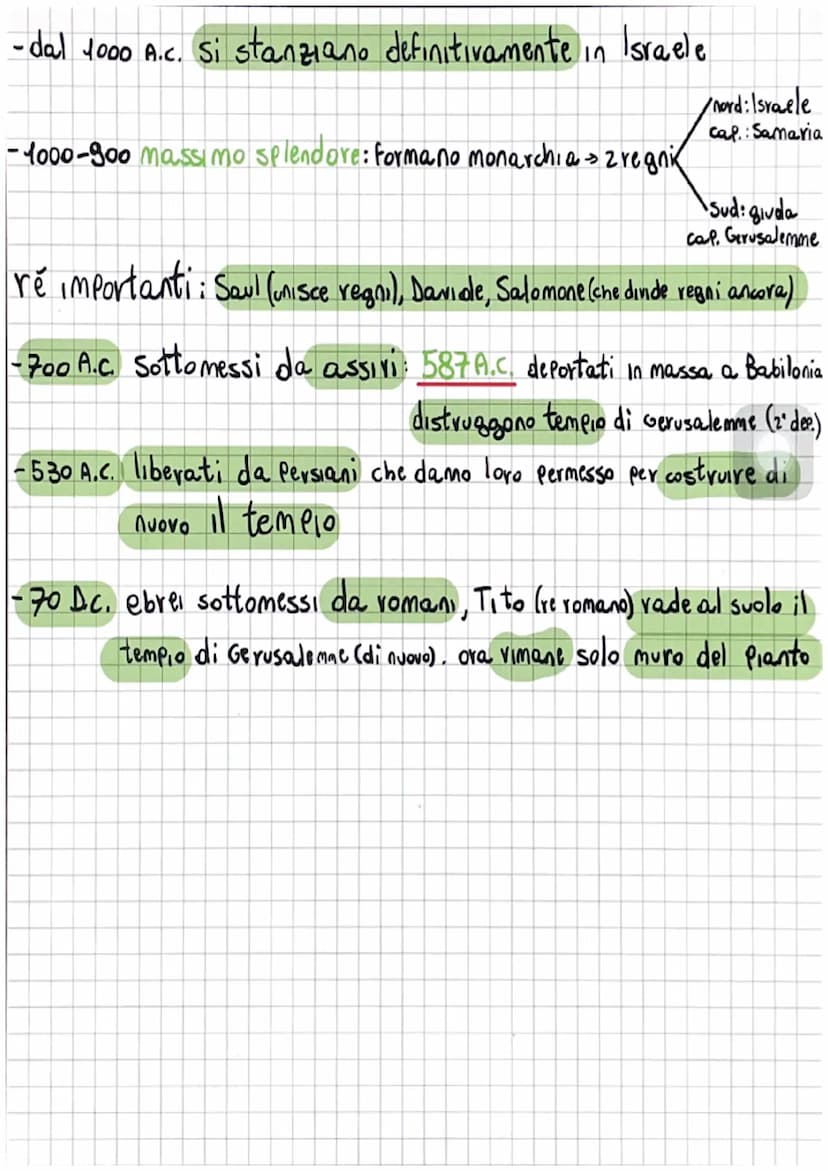 -dal 1000 A.C. si stanziano definitivamente in Israele
nord: Israele
cap.: Samaria
-1000-900 massimo splendore: formano monarchia → 2 regni
sud: giuda
cap. Gerusalemme
ré importanti: Saul (unisce regni), Davide, Salomone (che divide regni ancora)
-700 A.C. sottomessi da assiri: 587 A.C. deportati in massa a Babilonia
distruggono tempio di Gerusalemme (2° dep.)
-530 A.C. liberati da Persiani che danno loro permesso per costruire di
nuovo il tempio
-70 D.C. ebrei sottomessi da romani, Tito (re romano) rade al suolo il
tempio di Gerusalemme (di nuovo). ora rimane solo muro del pianto